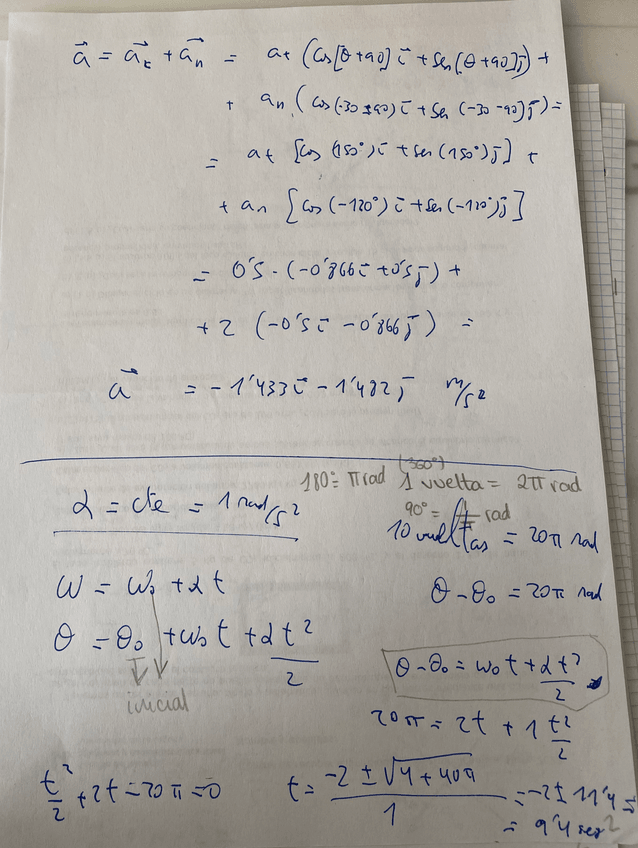 a⃗ = a⃗t + a⃗n = at (Cos[θ+90] i⃗ + Sen[θ+90] j⃗) +
+ an (Cos(-30-90) i⃗ + Sen (-30-90) j⃗) =
= at [Cos (150°) i⃗ + Sen (150°) j⃗] +
+ an [Cos (-120°) i⃗ + Sen (-120°) j⃗]
= 0'5 · (-0'866 i⃗ + 0'5 j⃗) +
+ 2 (-0'5 i⃗ - 0'866 j⃗) =
a⃗ = -1'433 i⃗ - 1'482 j⃗ m/s²
(360°)
180° = π rad 1 vuelta = 2π rad
α = cte = 1 rad/s²
90° = rad
10 vueltas = 20π rad
ω = ω₀ + αt
θ - θ₀ = 20π rad
θ = θ₀ + ω₀t + αt²/2
inicial
θ - θ₀ = ω₀t + αt²/2
20π = 2t + 1 t²/2
t²/2 + 2t - 20π = 0
t = (-2 ± √(4 + 40π))/1 = -2 ± 11'4 =
= 9'4 seg